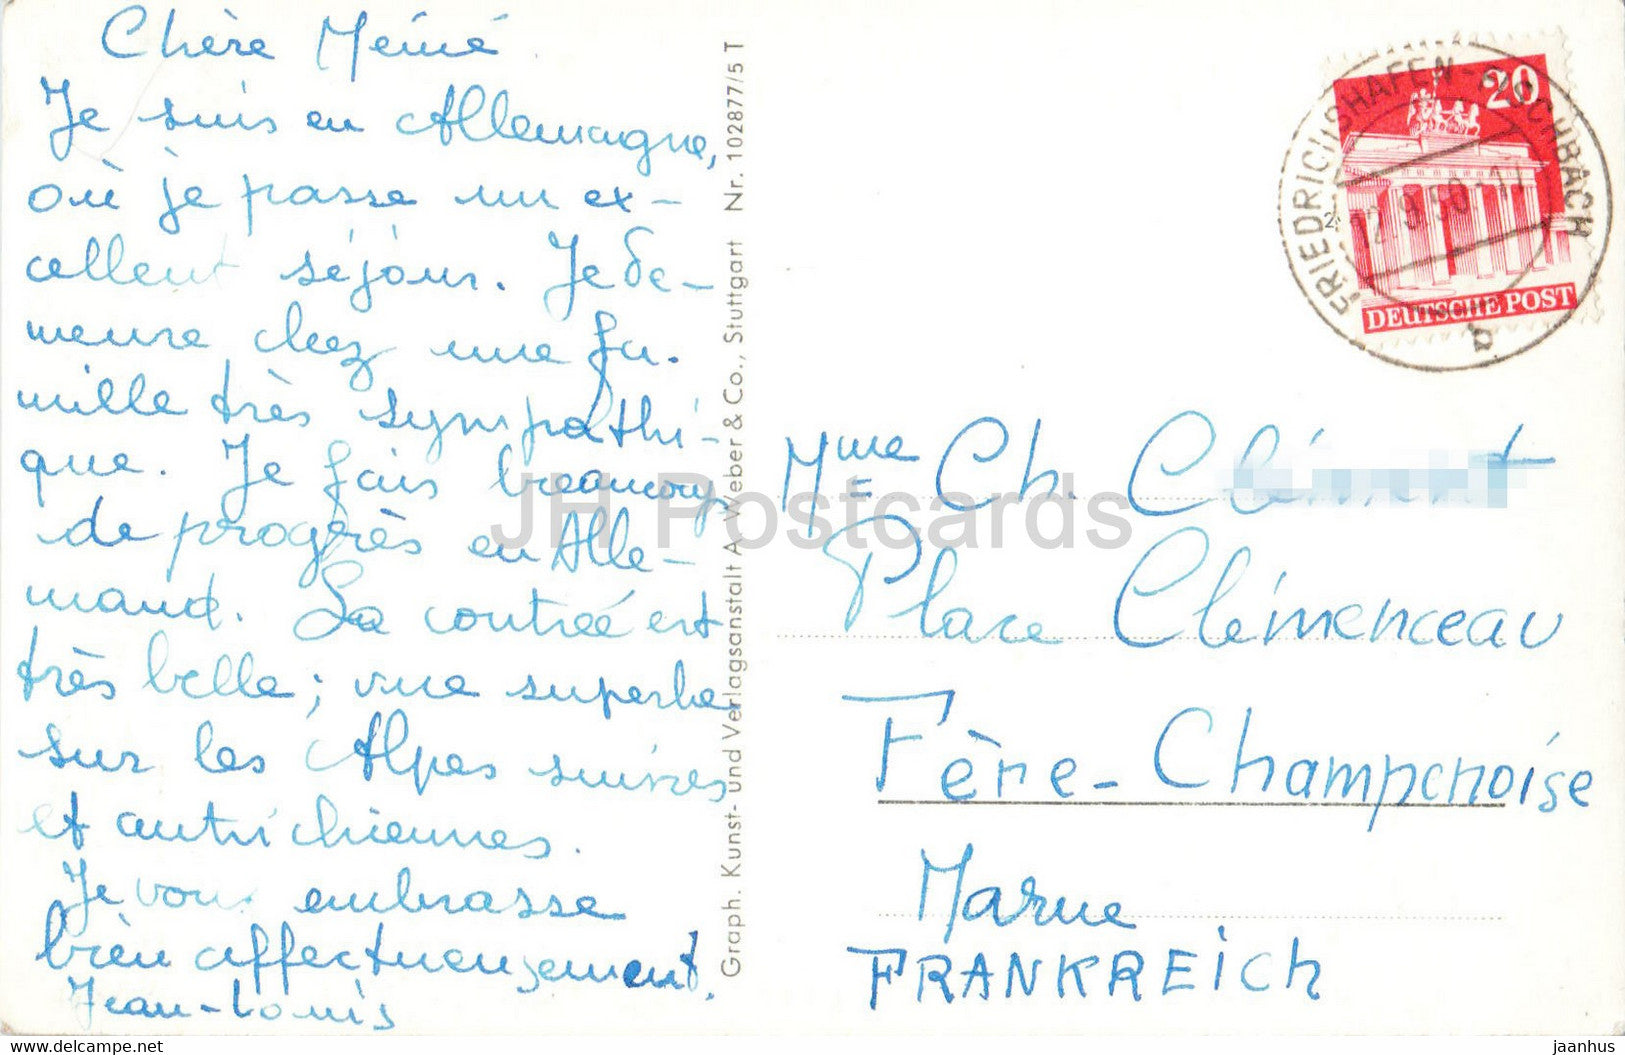 Chère Mémé
Je suis en Allemagne,
où je passe un ex-
cellent séjour. Je de-
meure chez une fa-
mille très sympathi-
que. Je fais beaucoup
de progrès en Alle-
mand. La contrée est
très belle ; vue superbe
sur les Alpes suisses
et autrichiennes.
Je vous embrasse
bien affectueusement.
Jean-Louis
Graph. Kunst- und Verlagsanstalt A. Weber & Co., Stuttgart Nr. 102877/5 T
20
DEUTSCHE POST
FRIEDRICHSHAFEN-FISCHBACH
12.9.50.-17
b
Mme Ch.
Place Clémenceau
Fère-Champenoise
Marne
FRANKREICH
JH Postcards
delcampe.net
jaanhus